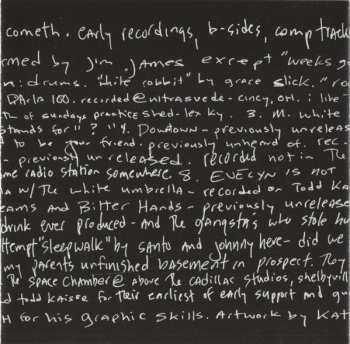 cometh. early recordings, b-sides, comp track
rmed by jim james except "weeks go
n: drums. "white rabbit" by grace slick." ro
DArla 100. recorded @ ultrasuede - cincy, OH. i like
th of sundays practice shed - lex ky. 3. M. White
stands for "? "4. Dowdown - previously unreleas
to be your friend. previously unheard of. rec.
- previously unreleased. recorded not in The
ome radio station somewhere. 8. EVELYN IS NOT
la w/ The white umbrella - recorded on Todd Ka
eams and Bitter Hands - previously unrelease
drink ever produced - And The gangsta's who stole ou
ttempt "sleepwalk" by santo and johnny here - did we
my parents unfinished basement in prospect. They
The Space Chamber @ above The cadillac studios, shelbyvill
d todd kaiser for Their earliest of early support and gu
H for his graphic skills. Artwork by KAT